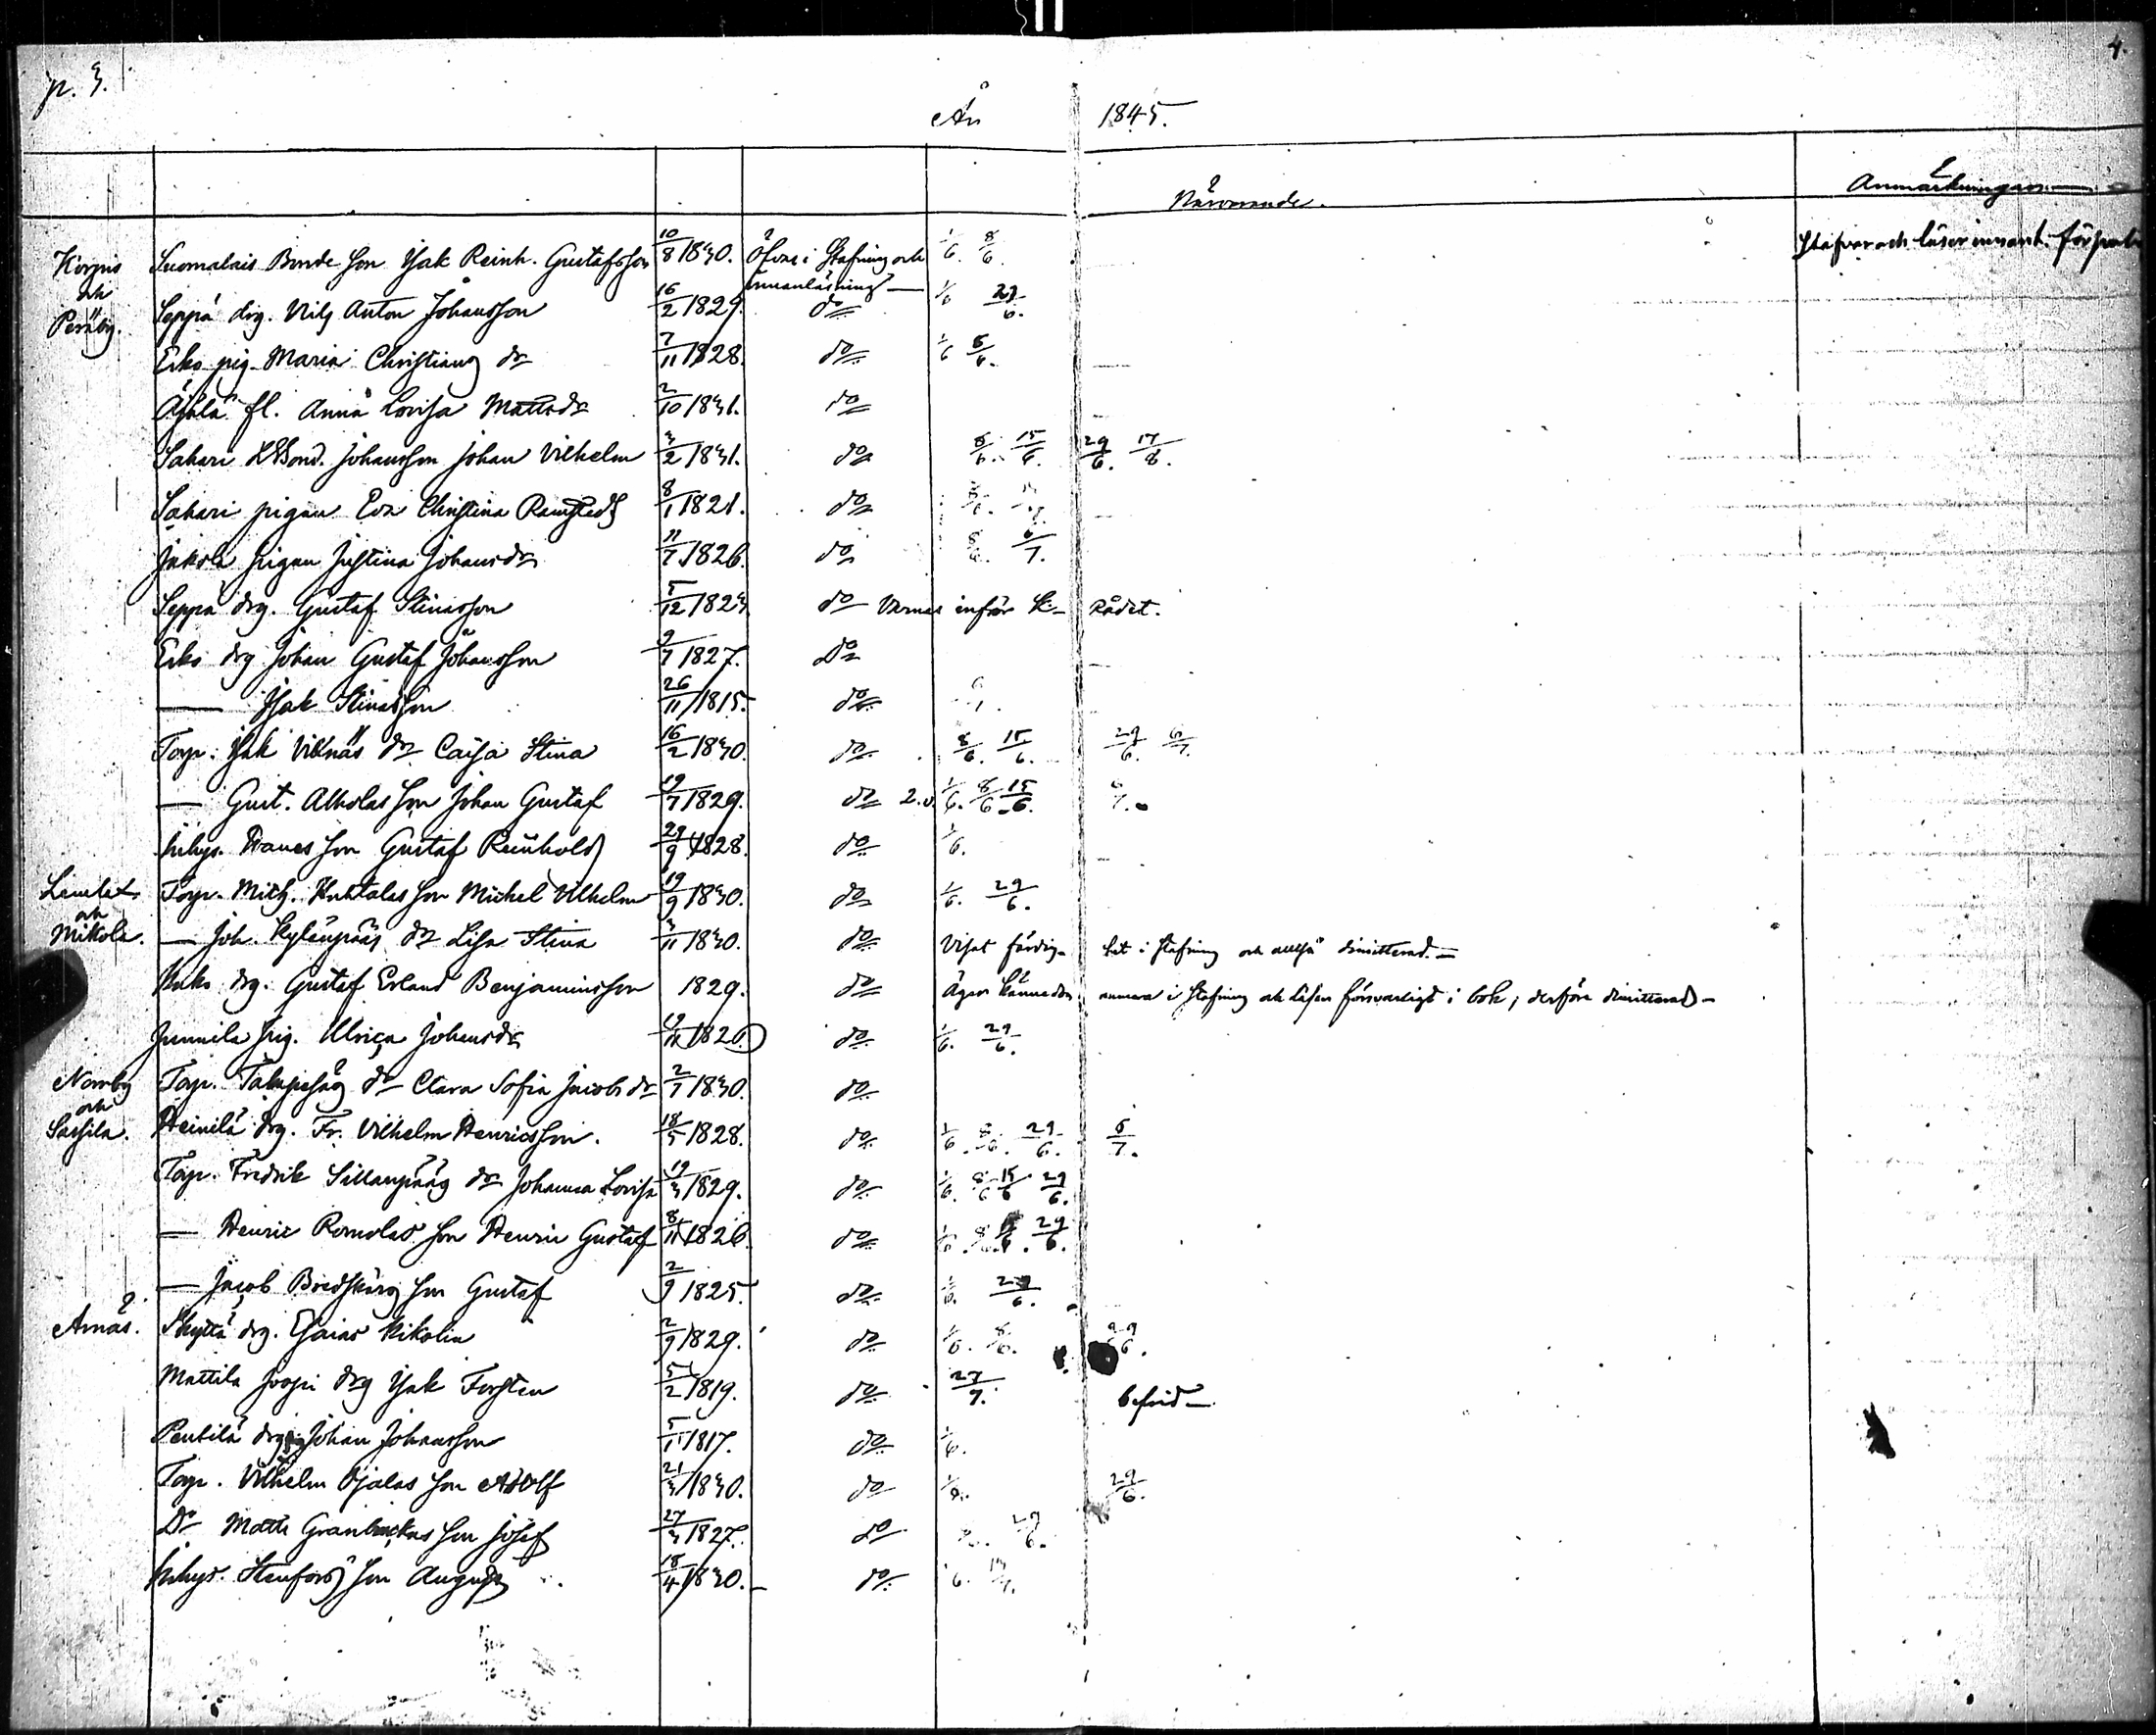 p. 3. 4.
År 1845.
Närvarande. Anmärkningar.
Korpis Suomalais Bonde son Isak Reinh. Gustafsson 10/8 1830. Öfvas i stafning och 1/6. 8/6. stafvar och läser innant.
och innanläsning
Peräby. Seppä drg. Nils Anton Johansson 16/2 1829. do 1/6 29/6.
Erko pig. Maria Christians dr 7/11 1828. do 1/6 8/6.
Äijälä fl. Anna Lovisa Mattsdr 2/10 1831. do
Sakari Johansson Johan Vilhelm 3/2 1831. do 8/6. 15/6. 29/6. 17/8.
Sakari pigan Eva Christina Ramstedt 8/1 1821. do
Jakola pigan Justina Johansdr 11/7 1826. do 8/6. 6/7.
Seppä drg. Gustaf Stinasson 5/12 1823. do Varnas inför K. Rådet.
Erko drg Johan Gustaf Johansson 9/7 1827. Do
— Isak Stinasson 26/11 1815. do
Torp. Isak Villnäs dr Caisa Stina 16/2 1830. do 8/6. 15/6. 29/6. 6/7.
— Gust. Alholas son Johan Gustaf 19/7 1829. do 1/6. 8/6 15/6. 6/7.
Inhys. Hanes son Gustaf Reinhold 29/9 1828. do 1/6.
Torp. Mich. Huhtalas son Michel Vilhelm 19/9 1830. do 1/6. 29/6.
och
Mikola. — Joh. Kylänpääs dr Lisa Stina 3/11 1830. do Visat färdighet i stafning och alltså dimitterad.
drg. Gustaf Erland Benjaminsson 1829. do Äger kännedom i stafning och läser försvarligt i bok, derföre dimitterad
Junnila pig. Ulrica Johansdr 1826. do 1/6. 29/6.
Norrby Torp. dr Clara Sofia Jacobsdr 2/7 1830. do
och
Sassila. Heinilä drg. Fr. Vilhelm Henricsson. 18/5 1828. do 1/6. 8/6. 29/6. 6/7.
Torp. Fredrik Sillanpääs dr Johanna Lovisa 19/3 1829. do 1/6. 8/6 15/6 29/6.
— Henric Romolas son Henric Gustaf 8/11 1826. do 1/6 8/6. 15/6. 29/6.
— Jacob Bredskärs son Gustaf 2/9 1825. do 1/6. 29/6.
Arnäs. Skyttä drg. Esaias Nikolin 2/9 1829. do 1/6. 8/6. 29/6.
Mattila drg Isak Forsten 5/2 1819. do 27/7. befrid
Pentilä drg Johan Johansson 5/1 1817. do 1/6.
Torp. Vilhelm Ojalas son Adolf 21/3 1830. do 29/6.
Do Matts Granbackas son Josef 27/3 1827. do 29/6.
Inhys. Stenfors son August 18/4 1830. do